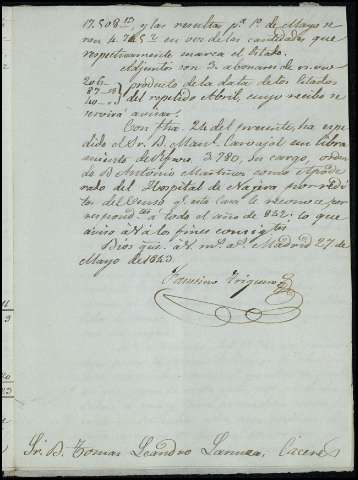 17.508 y las resultas pª 1º de Mayo se
en vez de las cantidades que
respectivamente marca el citado.
Adjuntos son 3. abonares de
206
87
40
producto de la data de los citados
del repetido Abril, cuyo recibo se
servirá avisar.
Con fha. 24 del presente, ha es
pedido el Sr. D. Manl. Carvajal un libra
miento de 3780, su cargo, orden
de D. Antonio Martinez como Apode
rado del Hospital de Nagera por rédi
tos del Censo qe. esta Casa le reconoce cor
respondtes. a todo el año de 842. lo que
aviso á V. á los fines consigtes.
Dios gue. á V. ms. as. Madrid 27 de
Mayo de 1843.
Faustino Trigueros
11
3
20
23
Sr. D. Tomas Leandro Lanuza. Cáceres